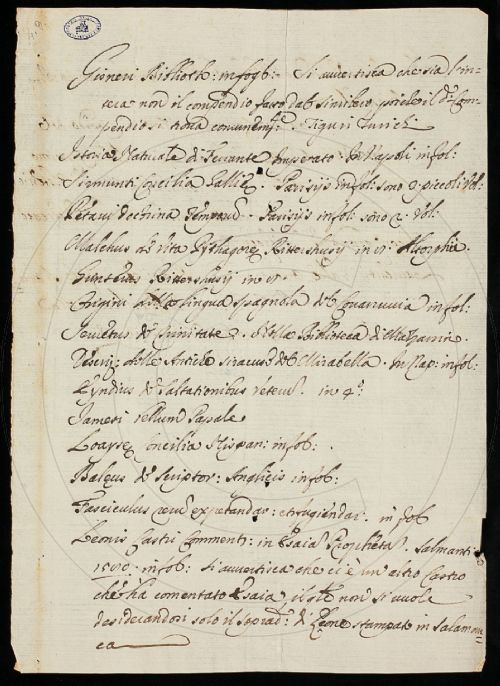 Gesneri Biblioth: in fogl: Si avvertisca che sia l'in=
tera non il compendio fatto dal Simlero, poiche il d.º Com-
pendio si trova comunem.te. Tiguri Zurich
Istoria Naturale di Ferrante Imperato. In Napoli in fol:
Sirmundi Concilia Galliæ. Parisijs in fol: sono 2 piccoli vol:
Petavi doctrina Temporum. Parisijs in fol: sono 2. vol:
Malchus de vita Pythagoræ Rittershusij in 8.
Guntherus Rittershusij in 8.
Origini della lingua Spagnola del Covarruvia in fol:
Servetus de Trinitate. Nella Biblioteca di Mazzarini.
delle Antiche Siracuse del Mirabella. In Nap: in fol:
de Saltationibus veterum. in 4.º
Vellum Papale
Loaysæ Concilia Hispan: in fol:
Baleus de Scriptor: Anglicis in fol:
Fasciculus rerum expetendar: et fugiendar. in fol
Leonis Castri Comment: in Isaiam Prophetam. Salmanti
in fol: Si avvertisca che ci è un altro Castro
che ha comentato Isaia, il qle non si vuole
desiderandosi solo il soprad.º di Leone stampato in Salaman
ca